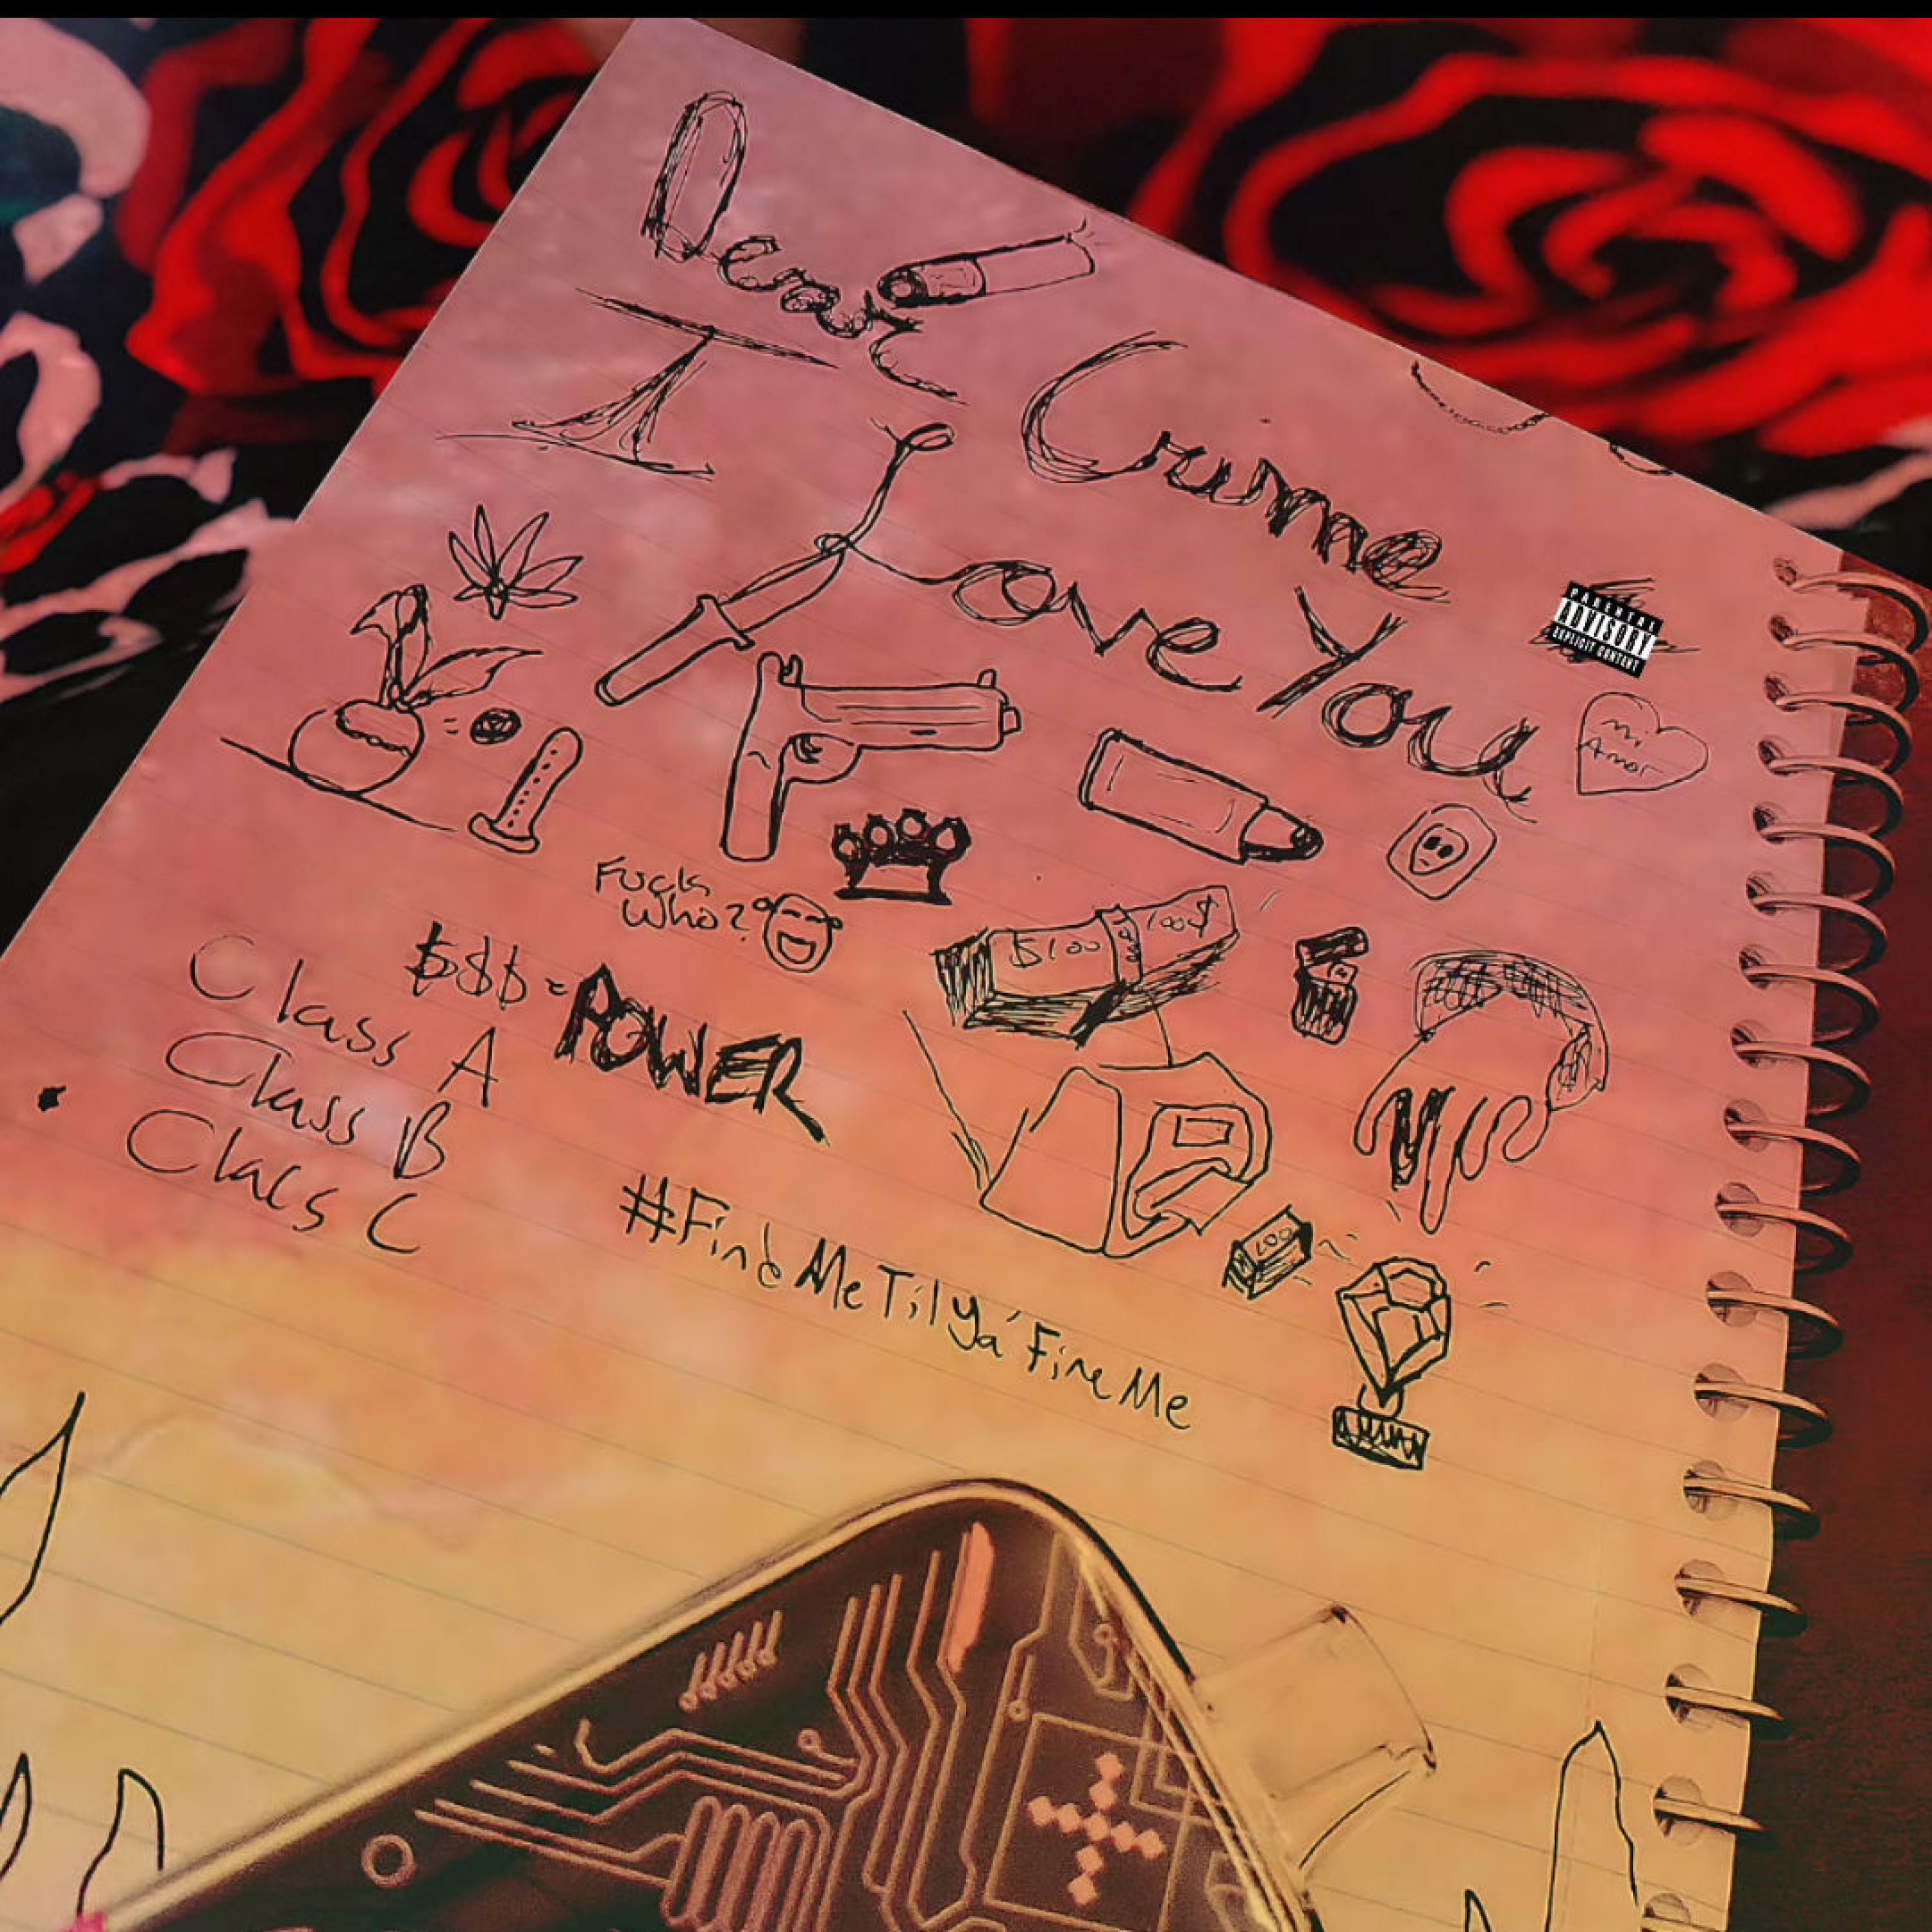 Dear Crime
I Love You
PARENTAL
ADVISORY
EXPLICIT CONTENT
Mi
Amor
Fuck
Who?
$100 100$
$$$ = POWER
Class A
Class B
Class C
100
#FindMeTilYa'FineMe